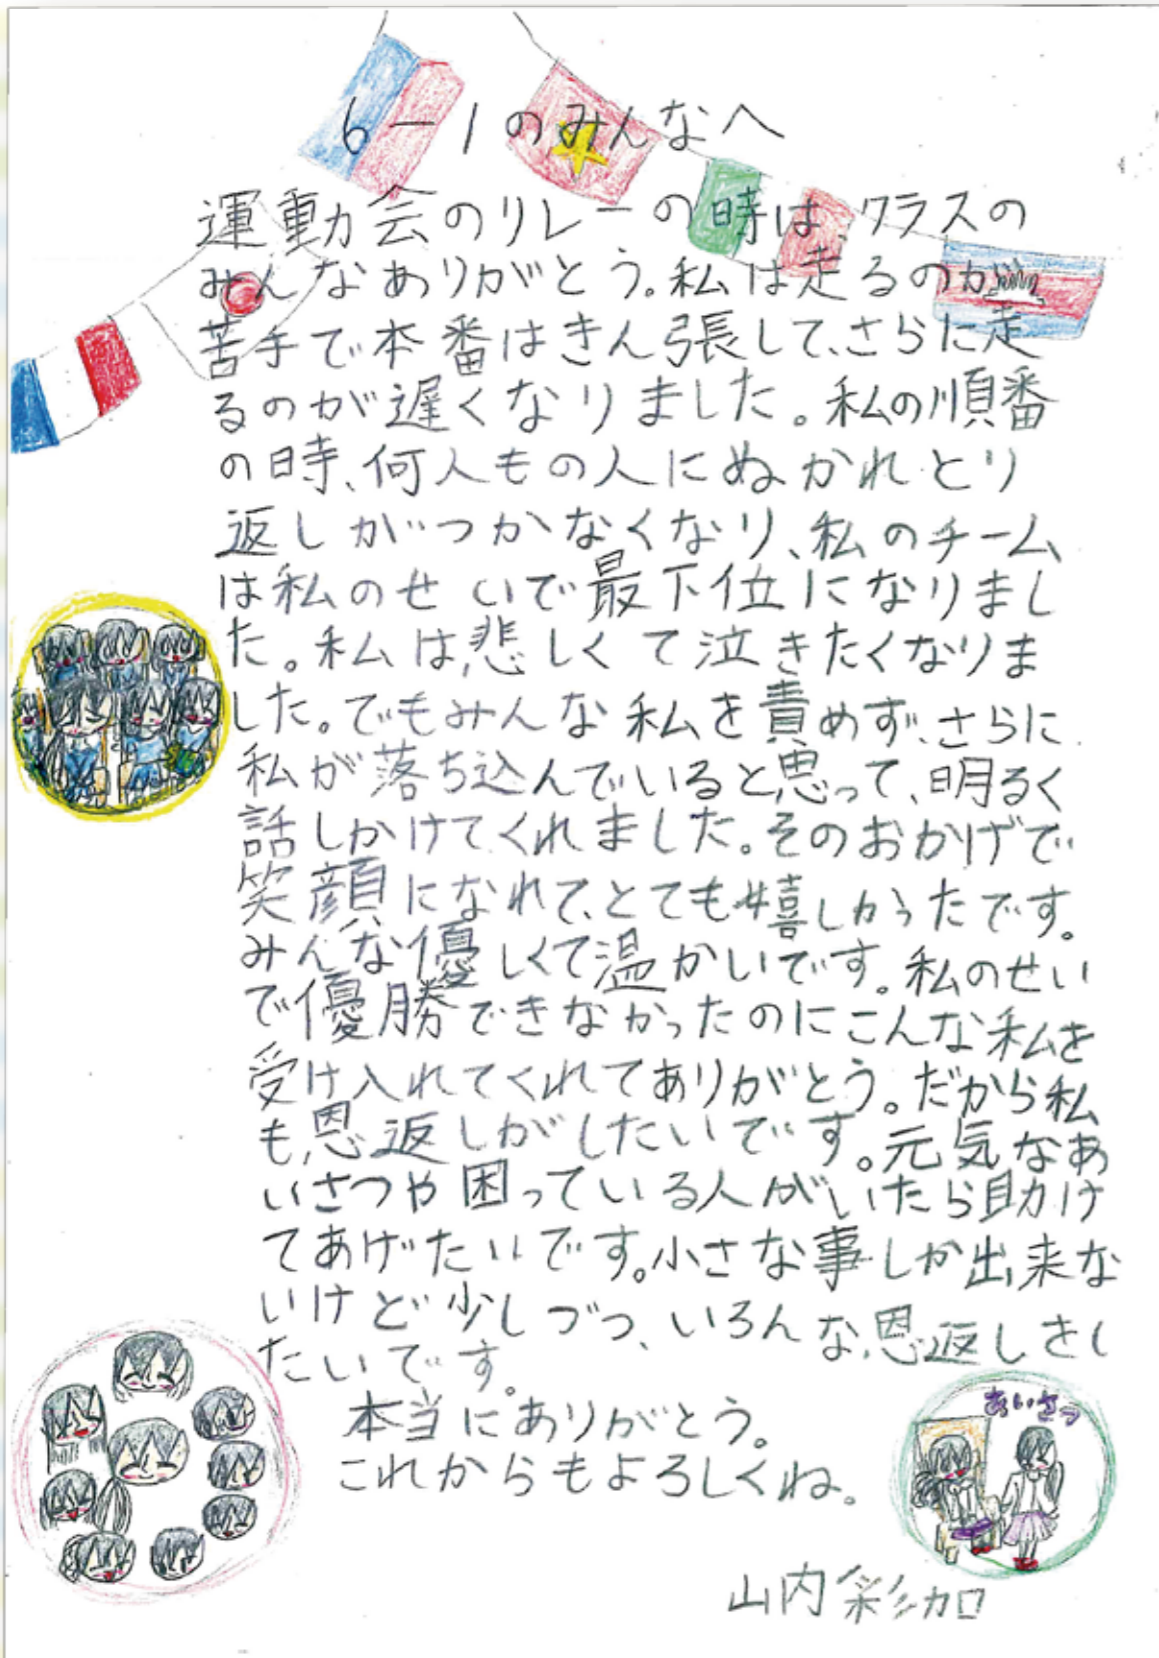 6－1のみんなへ
運動会のリレーの時は、クラスの
みんなありがとう。私は走るのが
苦手で本番はきん張して、さらに走
るのが遅くなりました。私の順番
の時、何人もの人にぬかれとり
返しがつかなくなり、私のチーム
は私のせいで最下位になりまし
た。私は、悲しくて泣きたくなりま
した。でもみんな私を責めず、さらに
私が落ち込んでいると思って、明るく
話しかけてくれました。そのおかげで
笑顔になれて、とても嬉しかったです。
みんな優しくて温かいです。私のせい
で優勝できなかったのにこんな私を
受け入れてくれてありがとう。だから私
も、恩返しがしたいです。元気なあ
いさつや困っている人がいたら助け
てあげたいです。小さな事しか出来な
いけど少しづつ、いろんな恩返しをし
たいです。
本当にありがとう。
これからもよろしくね。
あいさつ
山内彩加